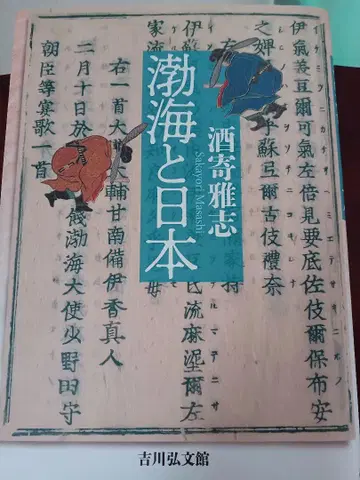 渤海と日本
酒寄雅志
Sakayori Masashi
伊氣美豆爾可氣左倍見要底佐伎爾保布安
之婢 乎蘇弖爾古伎禮奈
右
伊蘇 流麻埿爾左
家流
右一首大 輔甘南備伊香真人
二月十日於 餞渤海大使少野田守
朝臣等宴歌一首
吉川弘文館